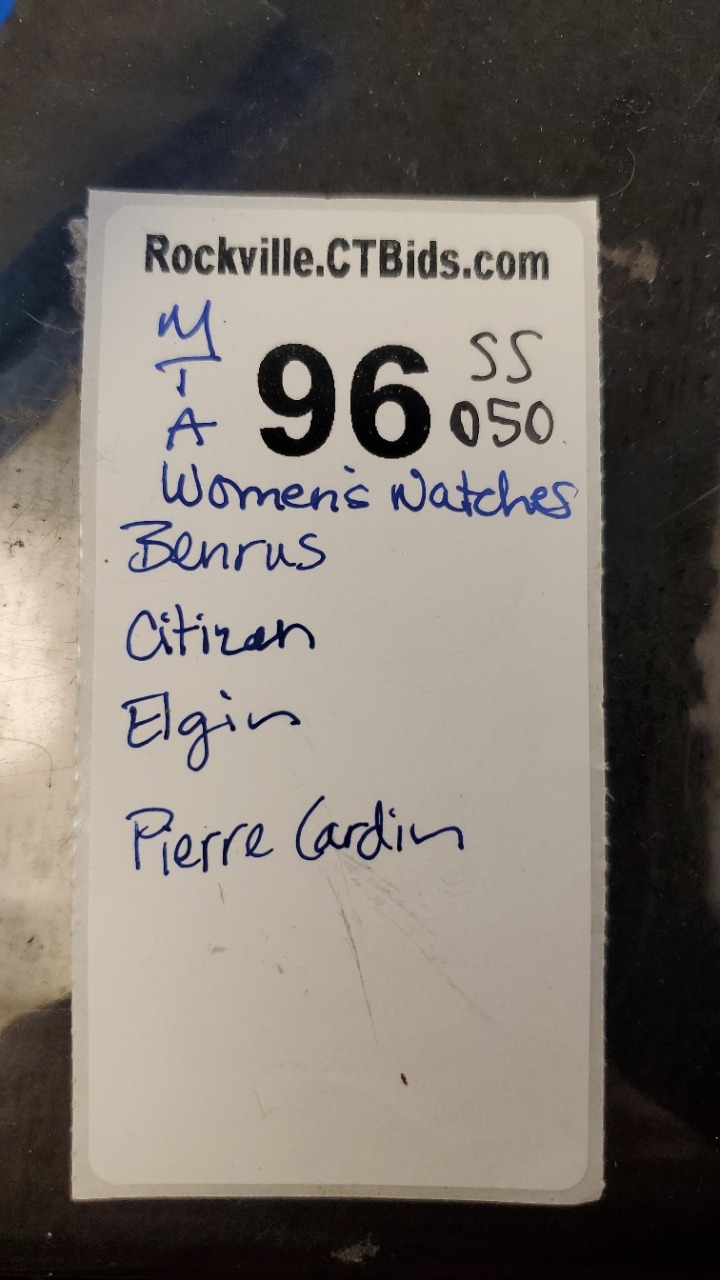 Rockville.CTBids.com
M
T
A
96
SS
050
Women's Watches
Benrus
Citizen
Elgin
Pierre Cardin